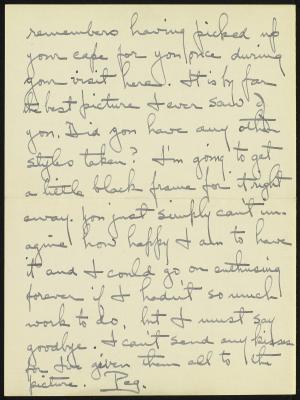 remembers having picked up
your cape for you once during
your visit here. It is by far
the best picture I ever saw of
you. Did you have any other
styles taken? I'm going to get
a little black frame for it right
away. You just simply can't im-
agine how happy I am to have
it and I could go on enthusing
forever if I hadn't so much
work to do, but I must say
goodbye. I can't send any kisses
for I've given them all to the
picture. Peg.